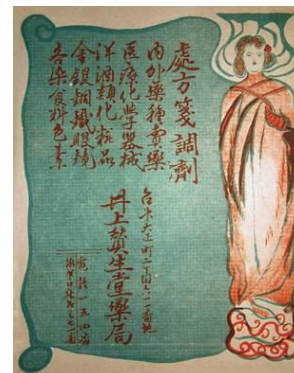 處方箋調劑
內外藥種賣藥
医療化學器械
洋酒類化粧品
金銀銅鐵眼鏡
各染食料色素
台中大正町二丁目
丹上賛生堂藥局
電話一五四番